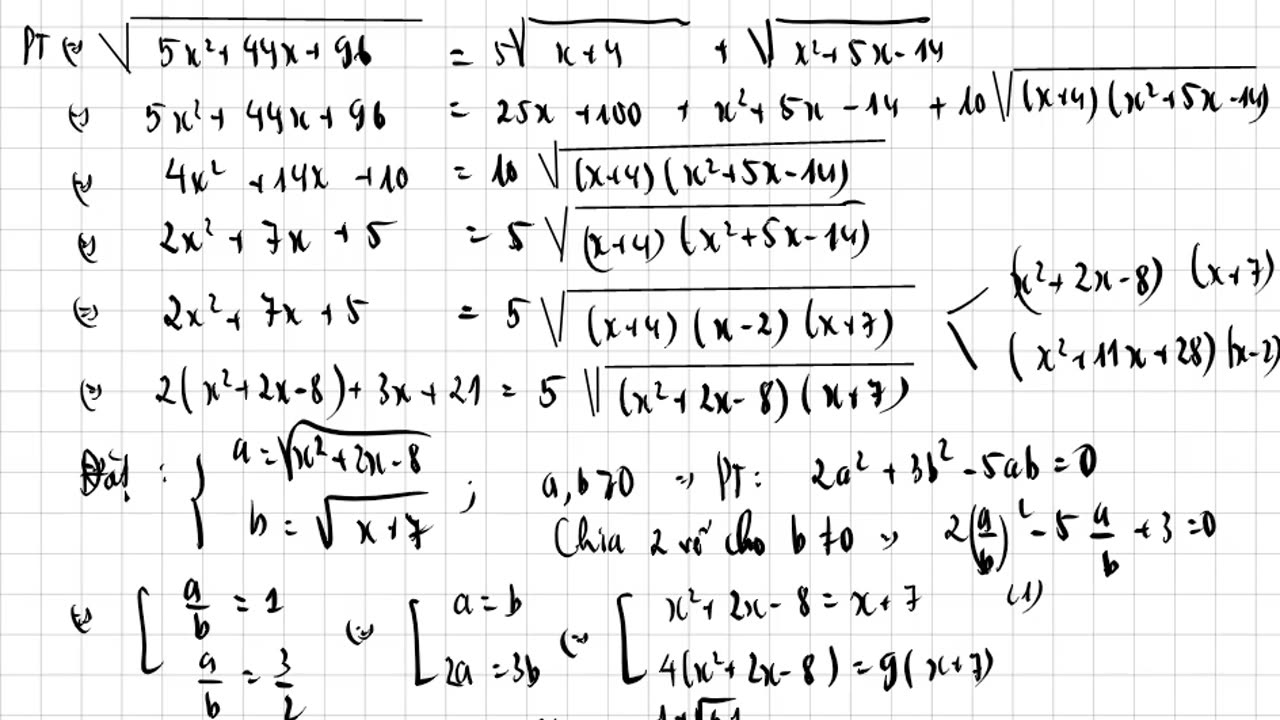 PT ⇔ √(5x² + 44x + 96) = 5√(x+4) + √(x² + 5x - 14)
⇔ 5x² + 44x + 96 = 25x + 100 + x² + 5x - 14 + 10√((x+4)(x² + 5x - 14))
⇔ 4x² + 14x + 10 = 10√((x+4)(x² + 5x - 14))
⇔ 2x² + 7x + 5 = 5√((x+4)(x² + 5x - 14))
⇔ 2x² + 7x + 5 = 5√((x+4)(x-2)(x+7))
(x² + 2x - 8)(x+7)
(x² + 11x + 28)(x-2)
⇔ 2(x² + 2x - 8) + 3x + 21 = 5√((x² + 2x - 8)(x+7))
Đặt : { a = √(x² + 2x - 8)
b = √(x+7) ;
a, b ≥ 0 ⇒ PT: 2a² + 3b² - 5ab = 0
Chia 2 vế cho b ≠ 0 ⇒ 2(a/b)² - 5 a/b + 3 = 0
(1)
⇔ [ a/b = 1
a/b = 3/2
⇔ [ a = b
2a = 3b
⇔ [ x² + 2x - 8 = x + 7
4(x² + 2x - 8) = 9(x+7)